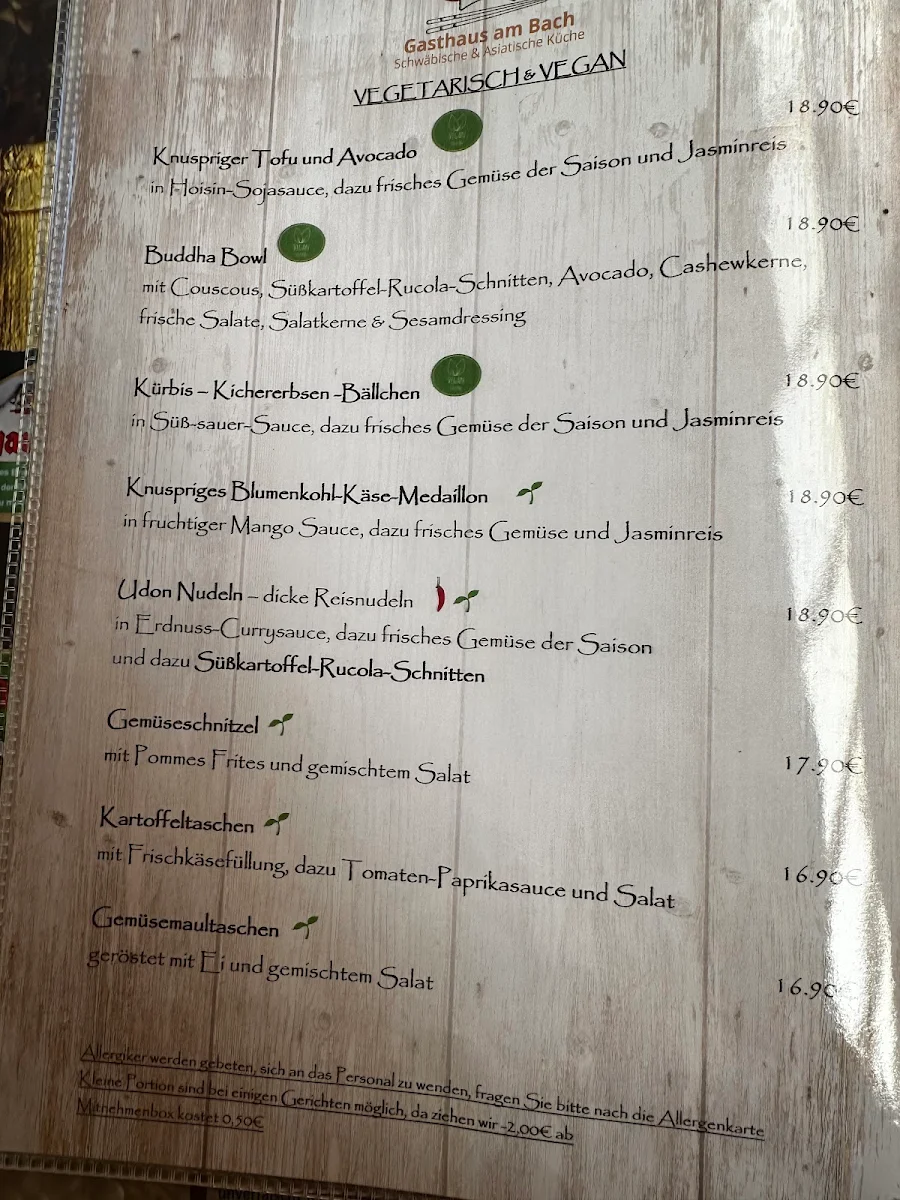 Gasthaus am Bach
Schwäbische & Asiatische Küche
VEGETARISCH & VEGAN
18.90€
Knuspriger Tofu und Avocado
in Hoisin-Sojasauce, dazu frisches Gemüse der Saison und Jasminreis
18.90€
Buddha Bowl
mit Couscous, Süßkartoffel-Rucola-Schnitten, Avocado, Cashewkerne,
frische Salate, Salatkerne & Sesamdressing
Kürbis – Kichererbsen -Bällchen 18.90€
in Süß-sauer-Sauce, dazu frisches Gemüse der Saison und Jasminreis
Knuspriges Blumenkohl-Käse-Medaillon 18.90€
in fruchtiger Mango Sauce, dazu frisches Gemüse und Jasminreis
Udon Nudeln – dicke Reisnudeln 18.90€
in Erdnuss-Currysauce, dazu frisches Gemüse der Saison
und dazu Süßkartoffel-Rucola-Schnitten
Gemüseschnitzel
mit Pommes Frites und gemischtem Salat 17.90€
Kartoffeltaschen
mit Frischkäsefüllung, dazu Tomaten-Paprikasauce und Salat 16.90€
Gemüsemaultaschen
geröstet mit Ei und gemischtem Salat 16.90
Allergiker werden gebeten, sich an das Personal zu wenden, fragen Sie bitte nach die Allergenkarte
Kleine Portion sind bei einigen Gerichten möglich, da ziehen wir -2,00€ ab
Mitnehmenbox kostet 0,50€